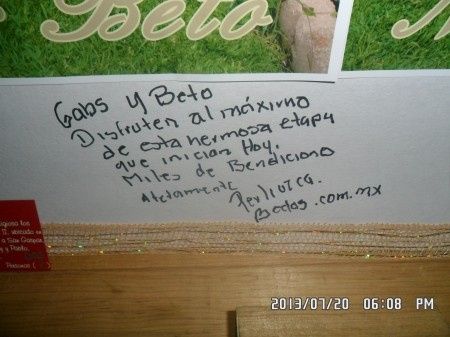 Beto
Gabs y Beto
Disfruten al máximo
de esta hermosa etapa
que inician Hoy.
Miles de Bendiciones
Atetamente
Bodas.com.mx
Personas (
2013/07/20 06:08 PM